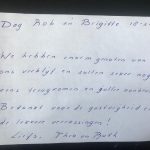 Dag Rob en Brigitte 18-
We hebben enorm genoten van
ons verblijf en zullen zeker nog
eens terugkomen en jullie
Bedankt voor de gastvrijheid en
de lekkere verrassingen!
Liefs, Theo en Ruth